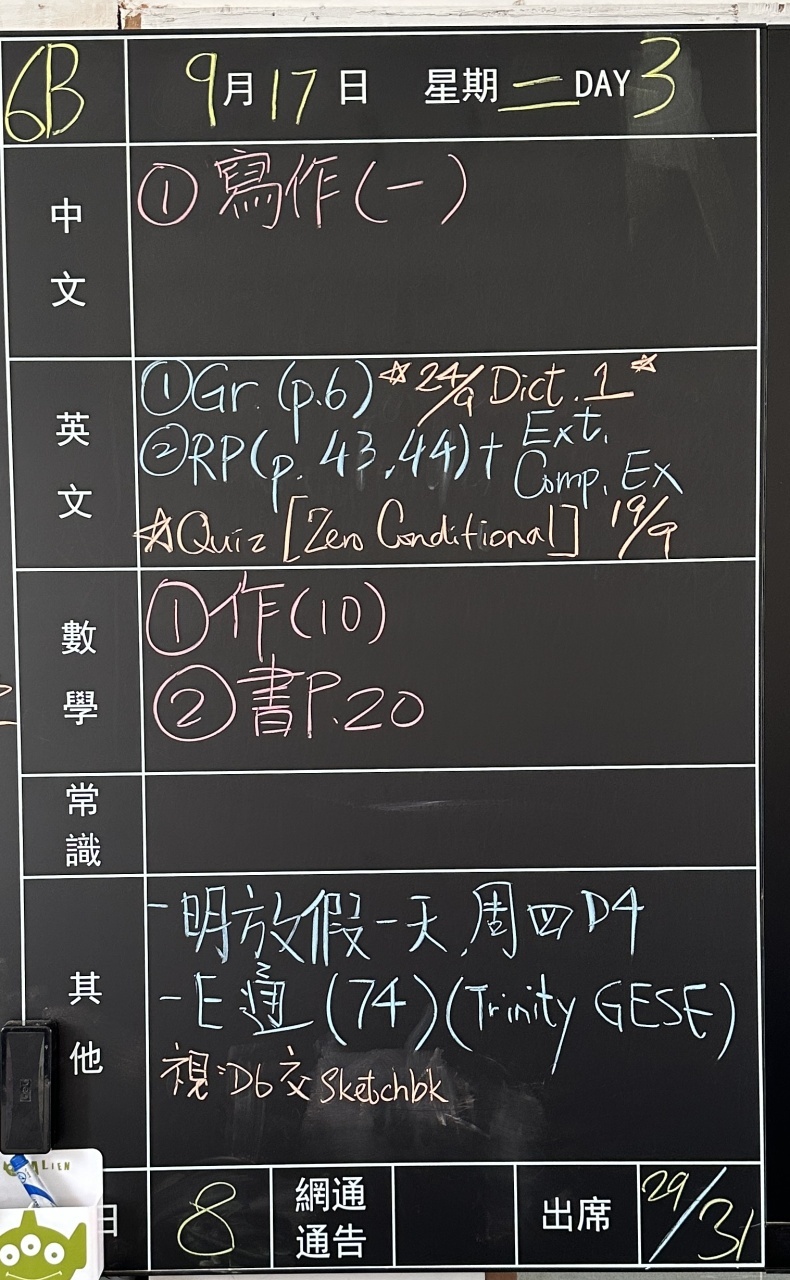 6B 9月17日 星期二 DAY 3
中文
① 寫作(一)
英文
① Gr. (p.6) ☆ 24/9 Dict. 1 ☆
② RP (p. 43, 44) + Ext. Comp. Ex
☆ Quiz [Zero Conditional] 19/9
數學
① 作(10)
② 書P.20
常識
其他
- 明放假一天, 周四 D4
- E通 (74) (Trinity GESE)
視:D6 交 Sketchbk
ALIEN
日 8 網通通告 出席 29/31